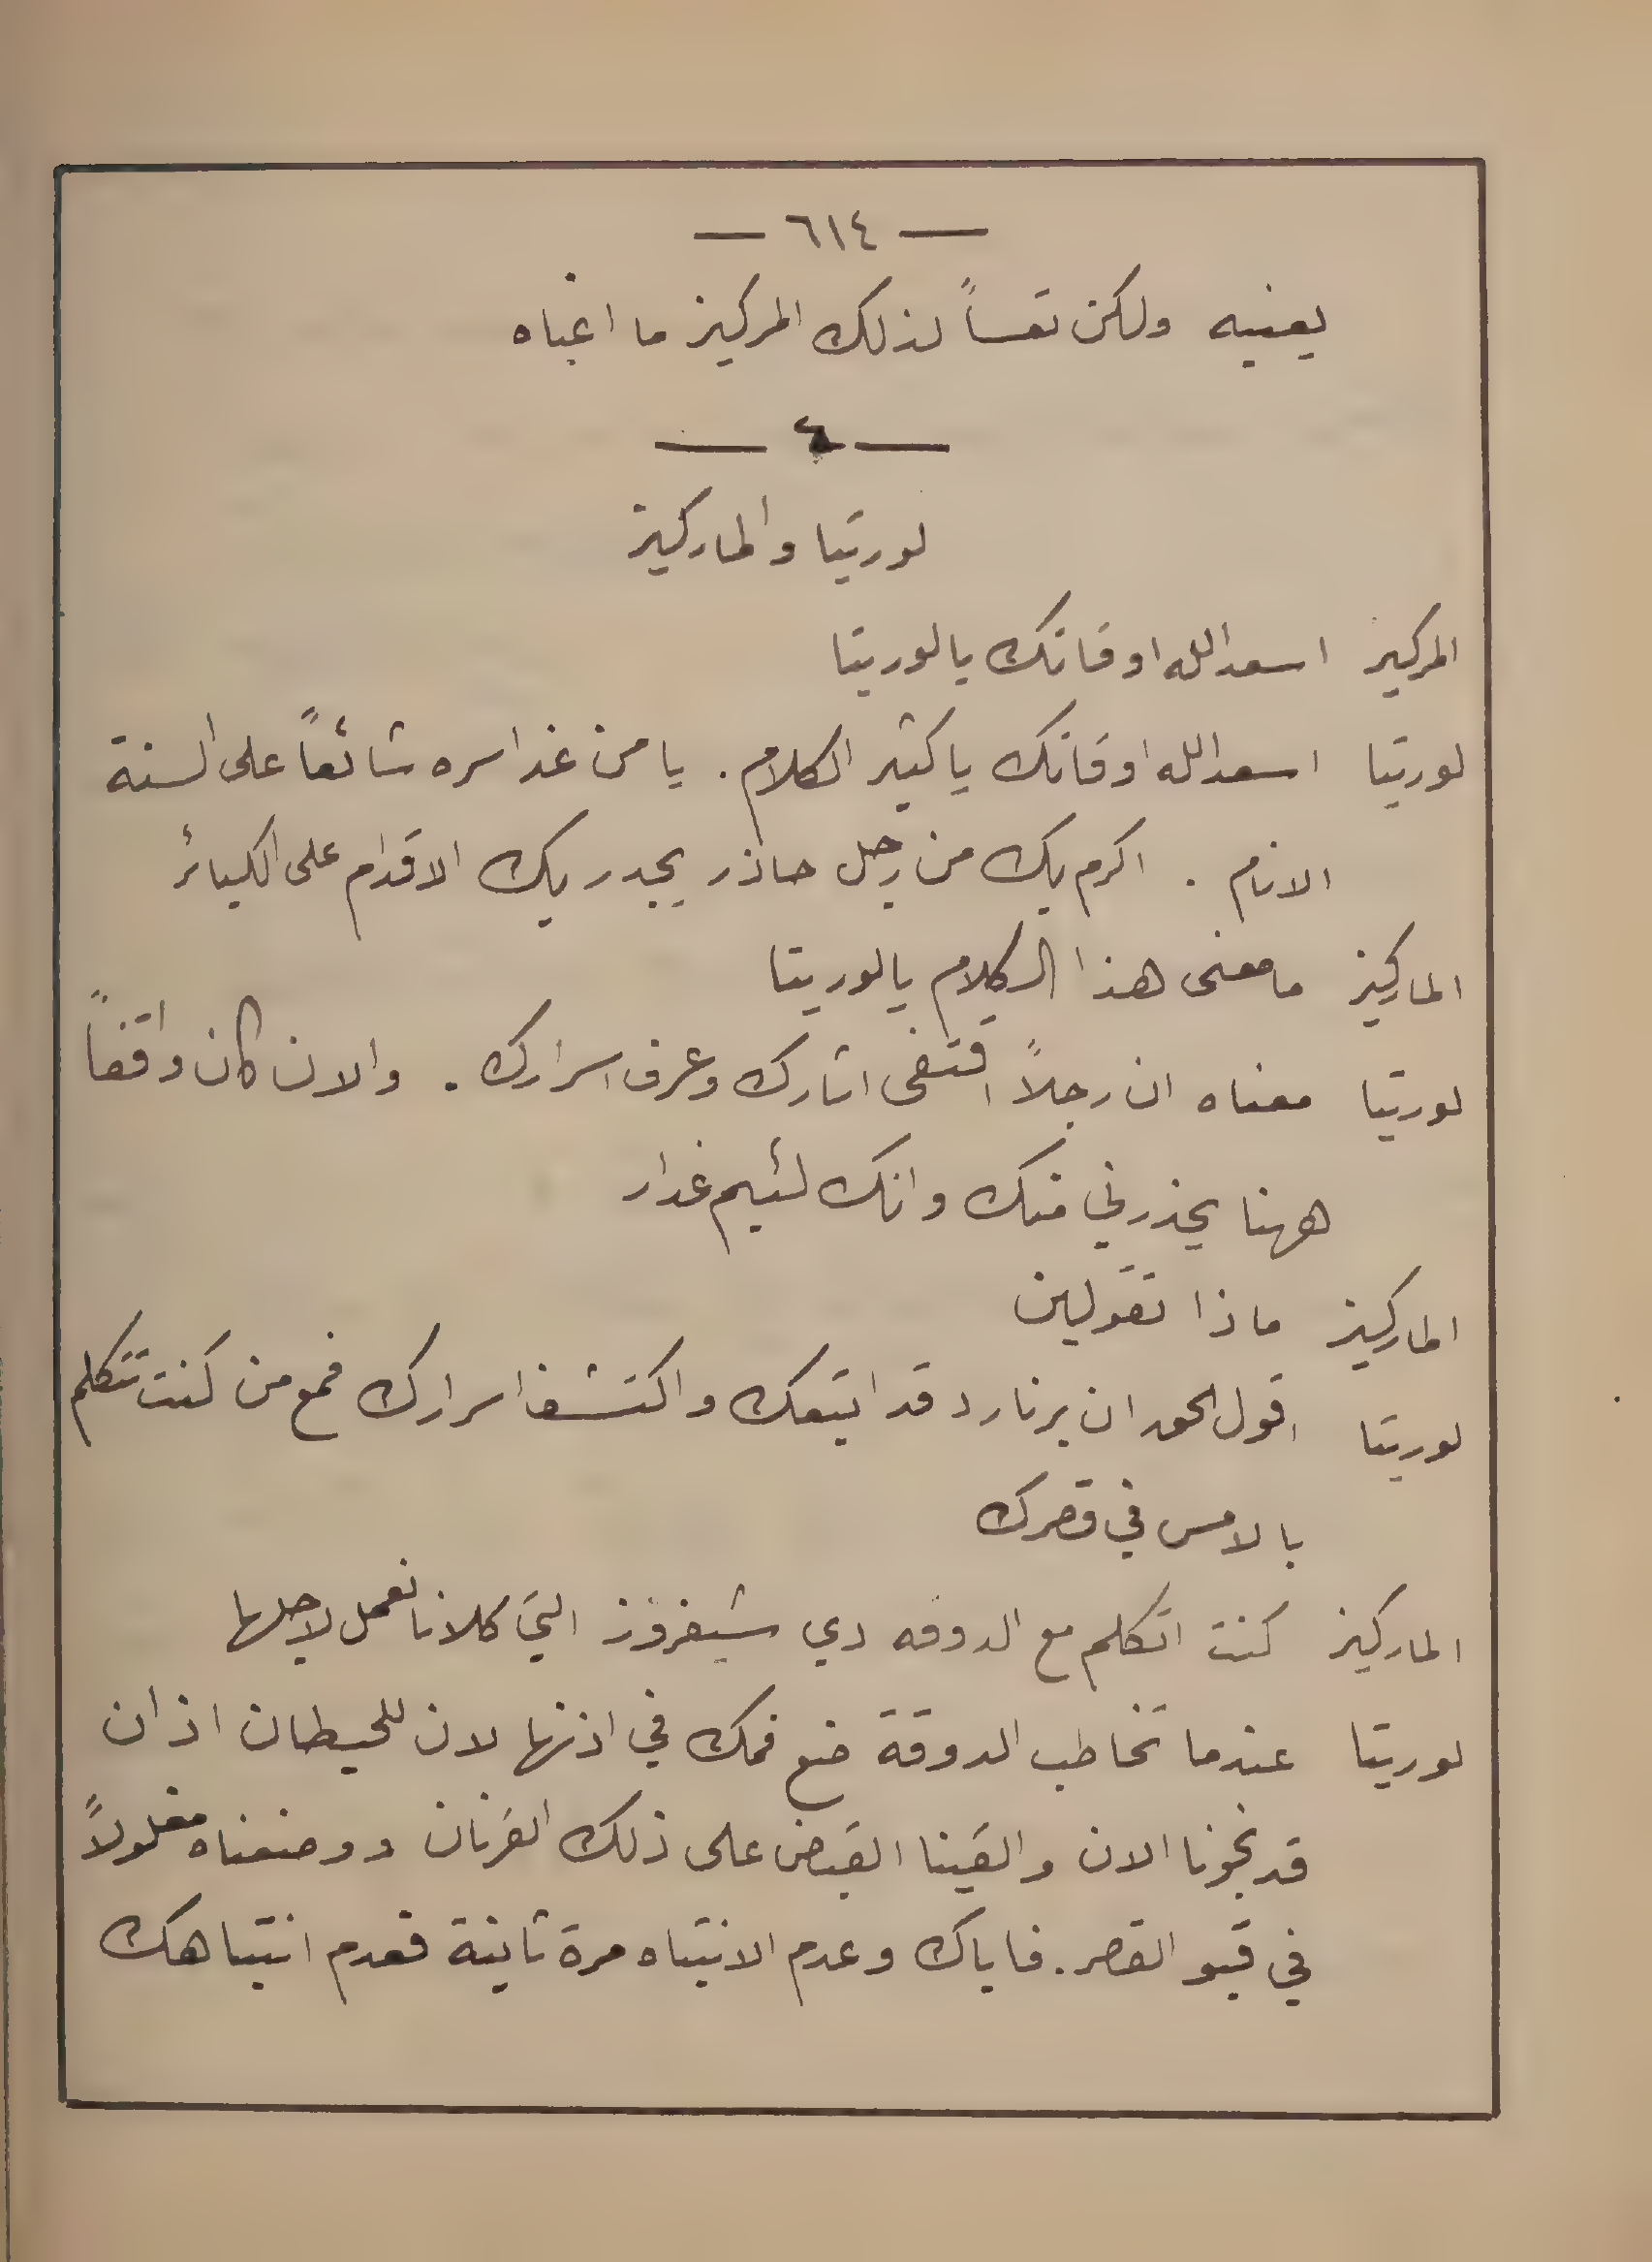 — ٦١٤ —
يعنيه ولكن تعساً لذلك المركيز ما اغباه
— ٤ —
لوريتا والماركيز
المركيز اسعد الله اوقاتك يا لوريتا
لوريتا اسعد الله اوقاتك يا كثير الكلام. يا من غدا سره شائعاً على السنة
الانام . اكرم بك من رجل حاذر يجدر بك الاقدام على الكبائر
الماركيز ما معنى هذا الكلام يا لوريتا
لوريتا معناه ان رجلاً اقتفى اثارك وعرف اسرارك . والان كان واقفاً
ههنا يحذرني منك وانك لئيم غدار
الماركيز ماذا تقولين
لوريتا اقول الحق ان برنارد قد اتبعك واكتشف اسرارك فمع من كنت تتكلم
بالامس في قصرك
الماركيز كنت اتكلم مع الدوقه دي شيفروز التي كلانا نعمل لاجلها
لوريتا عندما تخاطب الدوقة ضع فمك في اذنها لان للحيطان اذان
قد نجونا الان والقينا القبض على ذلك القرنان ووضعناه مغلولاً
في قبو القصر. فاياك وعدم الانتباه مرة ثانية فعدم انتباهك